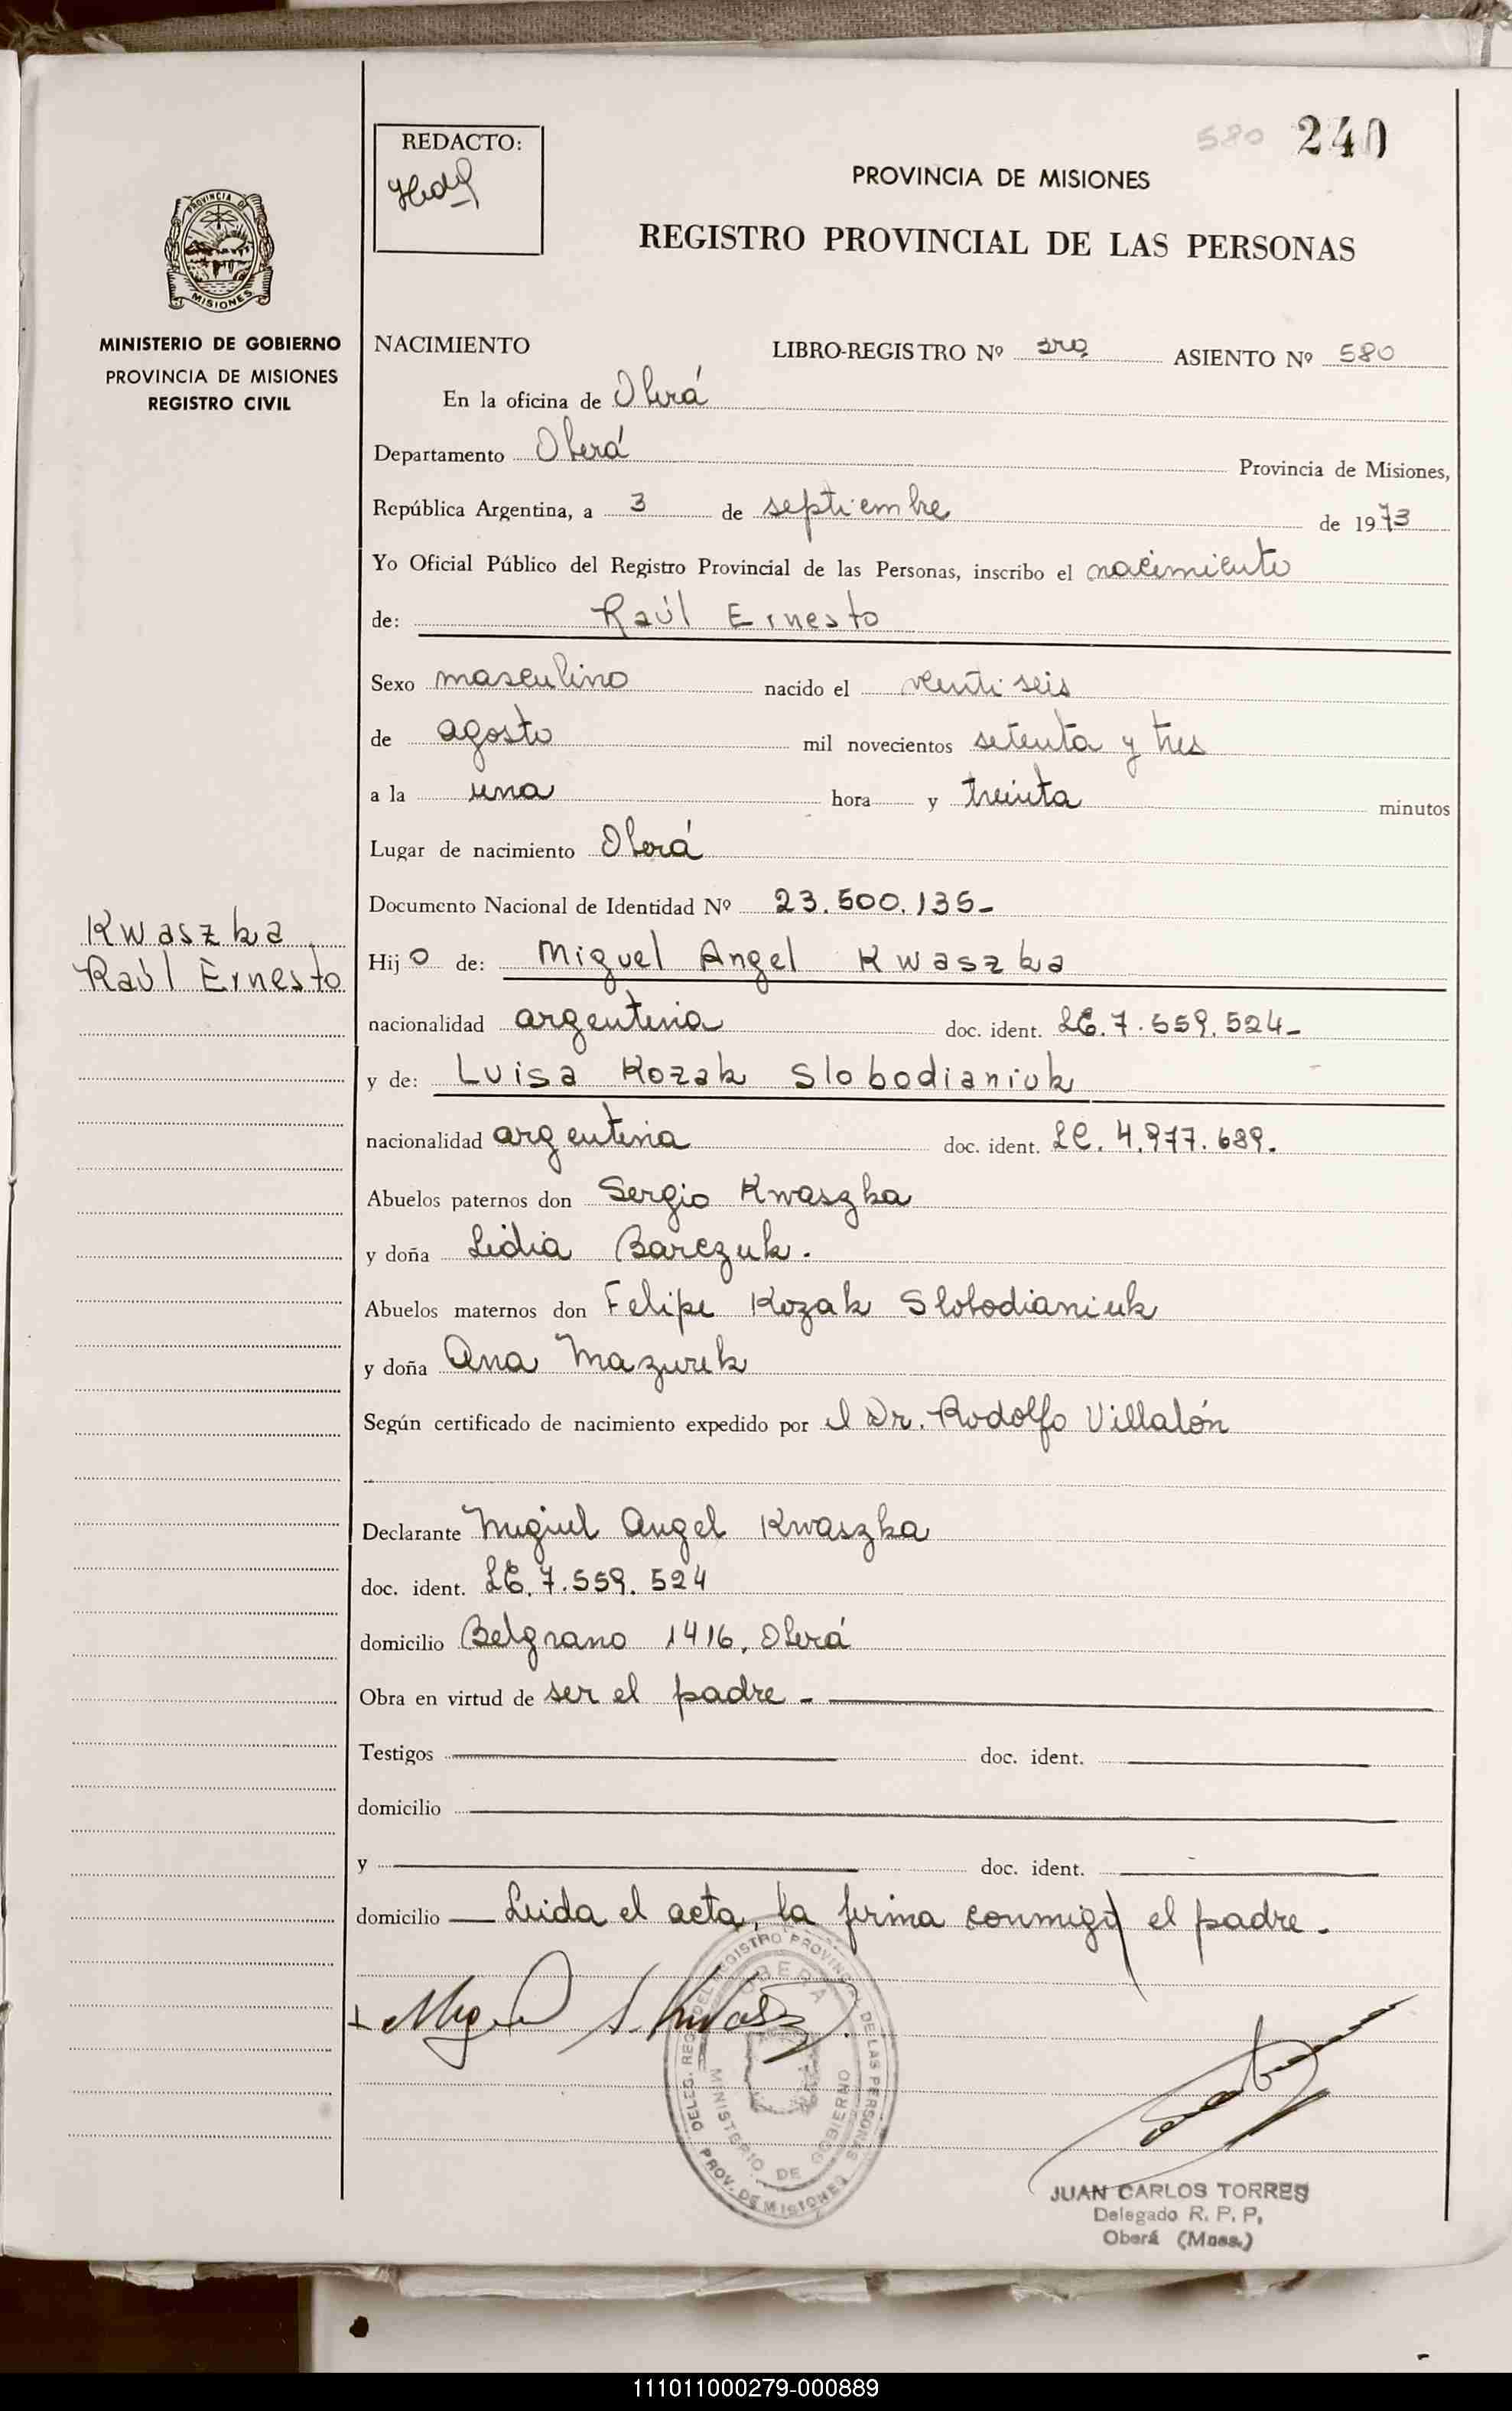 580 240
REDACTO:
PROVINCIA DE MISIONES
REGISTRO PROVINCIAL DE LAS PERSONAS
PROVINCIA DE
MISIONES
MINISTERIO DE GOBIERNO
PROVINCIA DE MISIONES
REGISTRO CIVIL
NACIMIENTO LIBRO-REGISTRO Nº 3ro ASIENTO Nº 580
En la oficina de Oberá
Departamento Oberá Provincia de Misiones,
República Argentina, a 3 de septiembre de 1973
Yo Oficial Público del Registro Provincial de las Personas, inscribo el nacimiento
de: Raúl Ernesto
Sexo masculino nacido el veinti seis
de agosto mil novecientos setenta y tres
a la una hora y treinta minutos
Lugar de nacimiento Oberá
Documento Nacional de Identidad Nº 23.500.135-
Kwaszka
Raúl Ernesto
Hijo de: Miguel Angel Kwaszka
nacionalidad argentina doc. ident. LE. 7.559.524-
y de: Luisa Kozak Slobodianiuk
nacionalidad argentina doc. ident. LC. 4.977.689.
Abuelos paternos don Sergio Kwaszka
y doña Lidia Barczuk.
Abuelos maternos don Felipe Kozak Slobodianiuk
y doña Ana Mazurek
Según certificado de nacimiento expedido por el Dr. Rodolfo Villalón
Declarante Miguel Angel Kwaszka
doc. ident. LE. 7.559.524
domicilio Belgrano 1416, Oberá
Obra en virtud de ser el padre -
Testigos doc. ident.
domicilio
y doc. ident.
domicilio — Leida el acta, la firma conmigo el padre.
DELEG. REG. DEL REGISTRO PROVINCIAL DE LAS PERSONAS
OBERA
MINISTERIO DE GOBIERNO
PROV. DE MISIONES
JUAN CARLOS TORRES
Delegado R. P. P.
Oberá (Mnes.)
111011000279-000889